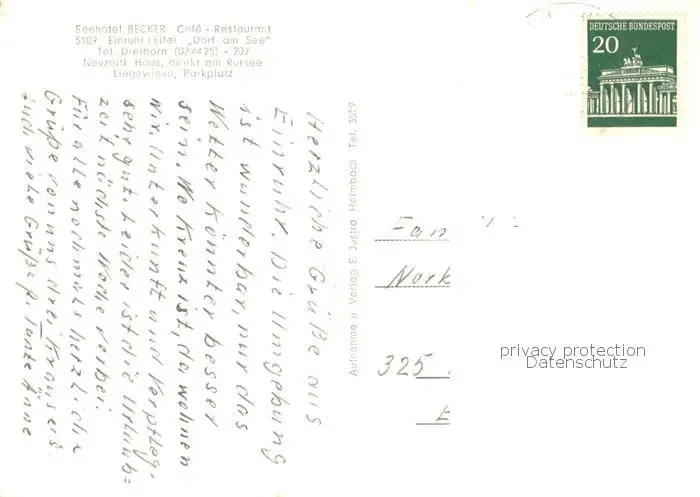 Seehotel BECKER Café - Restaurant
5109 Einruhr / Eifel „Dorf am See"
Tel. Dreiborn (024425) - 207
Neuzeitl. Haus, direkt am Rursee
Liegewiese, Parkplatz
Herzliche Grüße aus
Einruhr. Die Umgebung
ist wunderbar, nur das
Wetter könnte besser
sein. Wo Kreuz ist, da wohnen
wir. Unterkunft und Verpfleg.
sehr gut. Leider ist die Urlaubs=
zeit nächste Woche vorbei.
Für alle nochmals herzliche
Grüße von uns drei, Krauses.
Auch viele Grüße f. Tante Änne
Aufnahme u. Verlag E. Justra Heimbach Tel. 3529
DEUTSCHE BUNDESPOST
20
Fam
325
privacy protection
Datenschutz